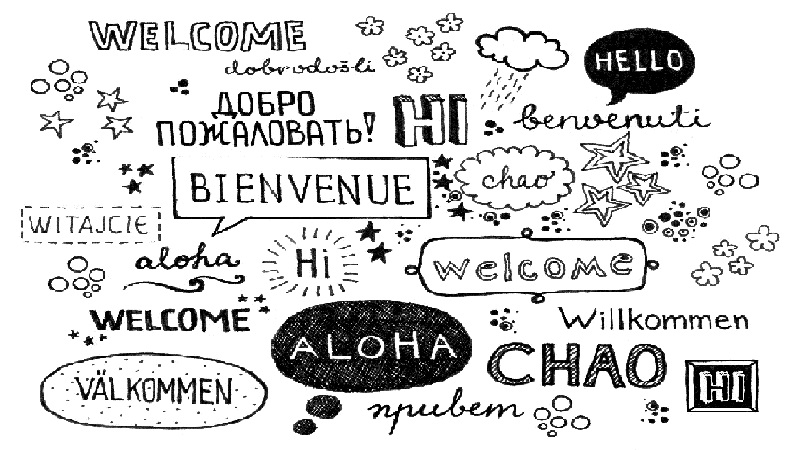 WELCOME
dobrodošli
HELLO
ДОБРО
ПОЖАЛОВАТЬ!
HI
benvenuti
BIENVENUE
chao
WITAJCIE
aloha
Hi
welcome
WELCOME
ALOHA
Willkommen
CHAO
VÄLKOMMEN
HI
привет